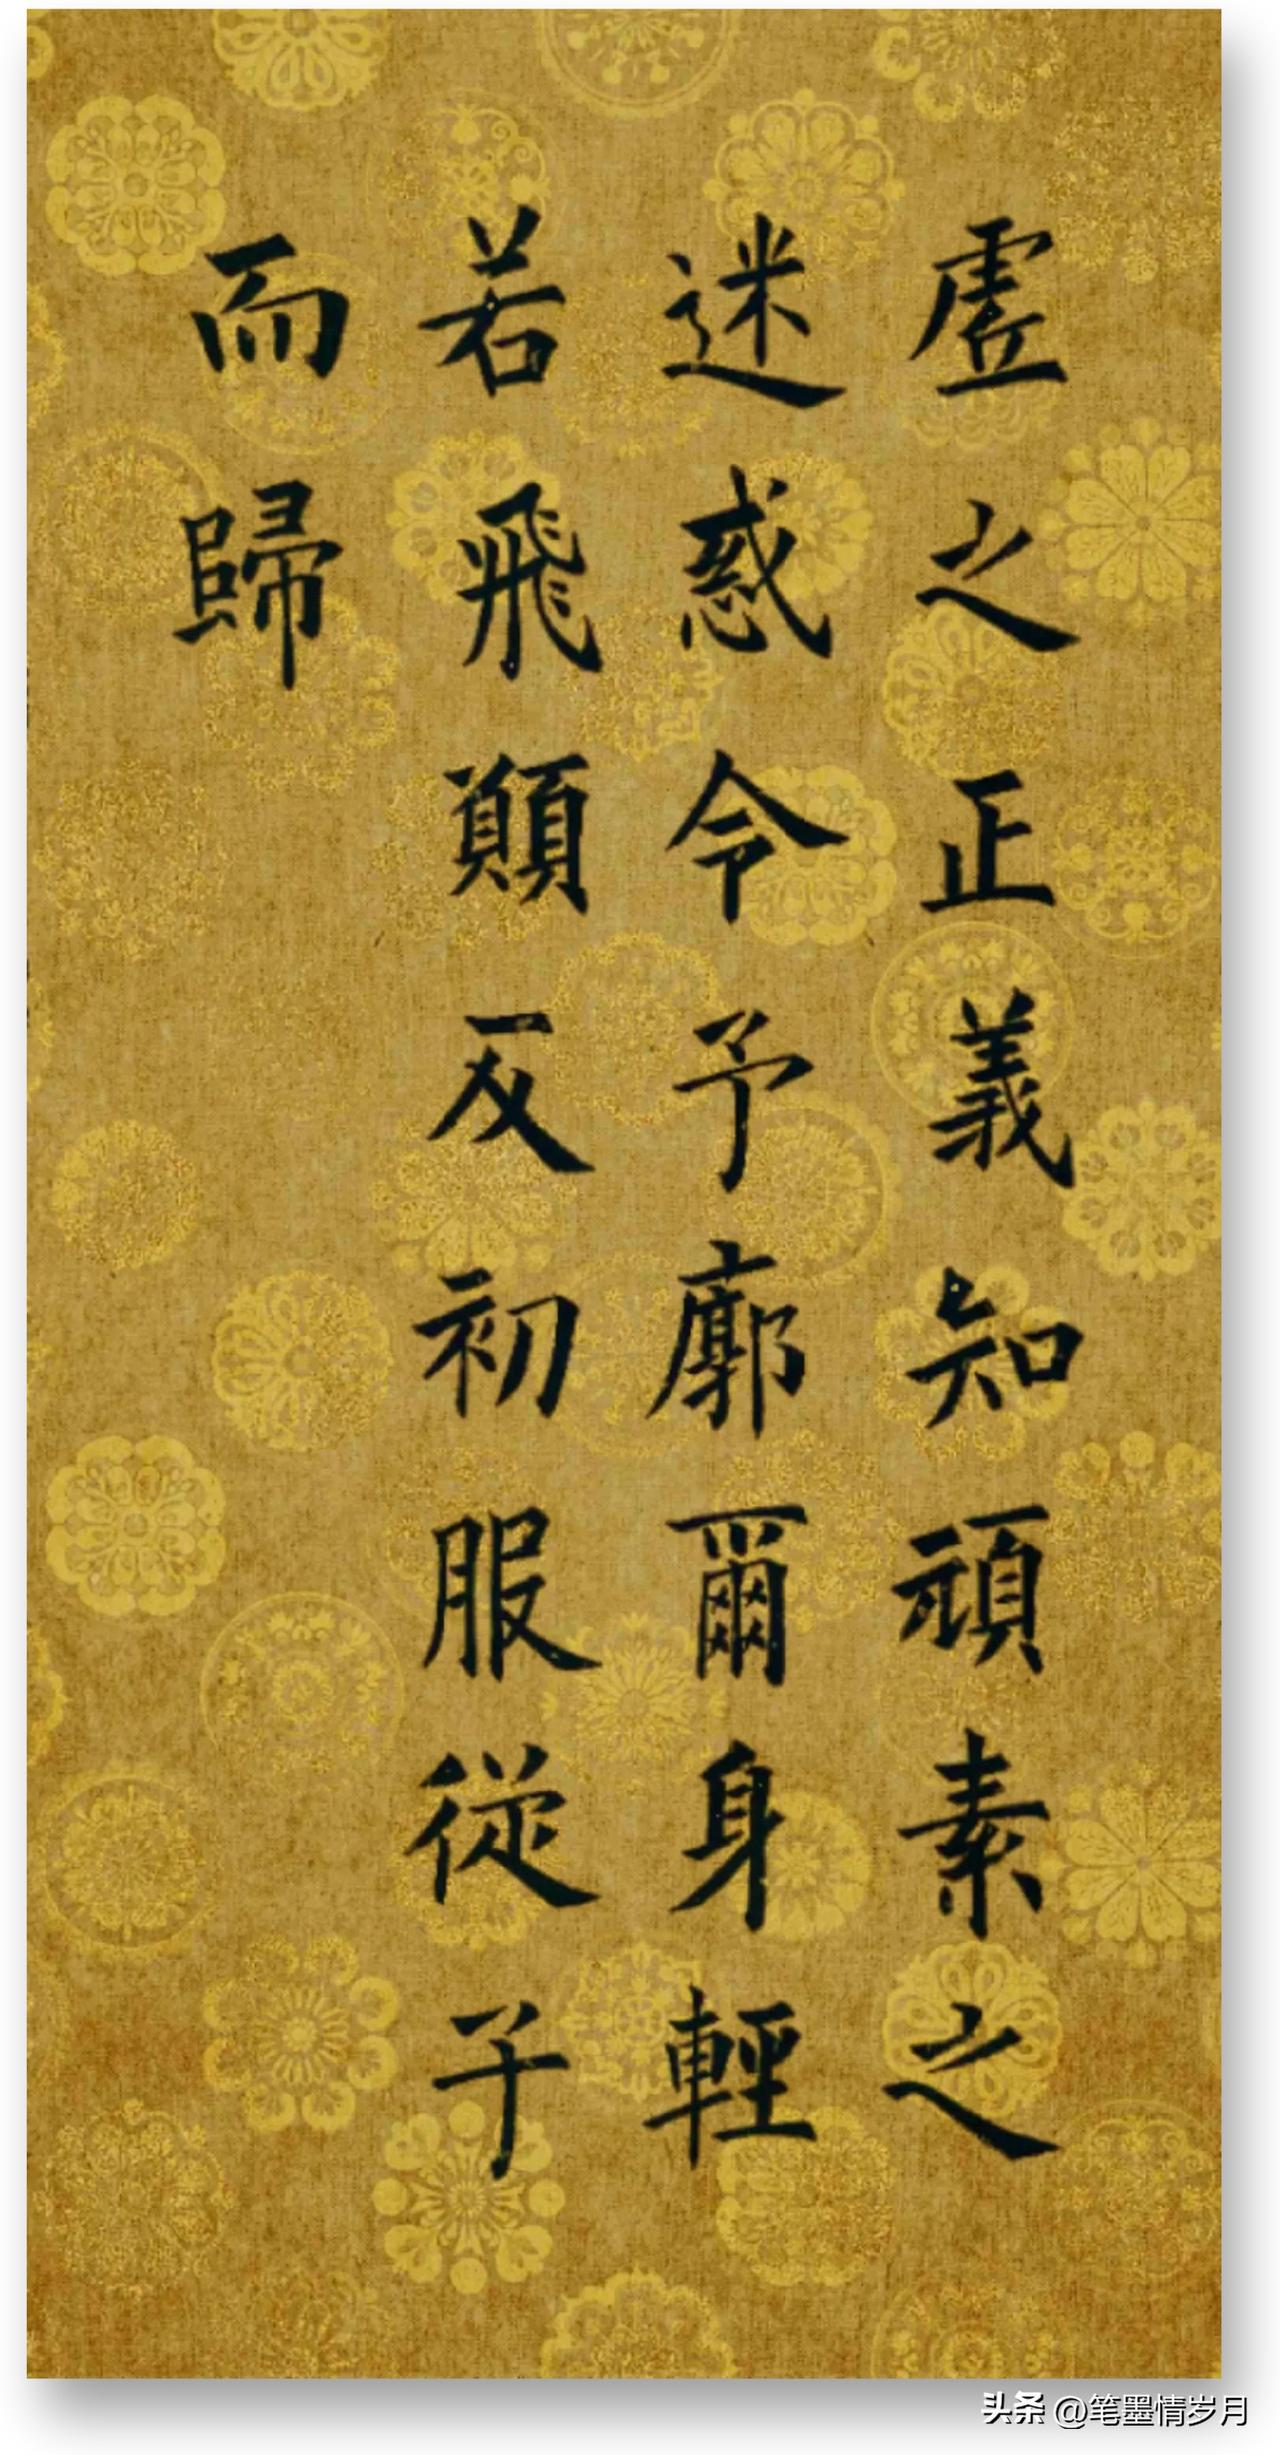 虗之正義知頑素之
迷惑令予廓爾身輕
若飛願反初服從子
而歸
头条 @笔墨情岁月